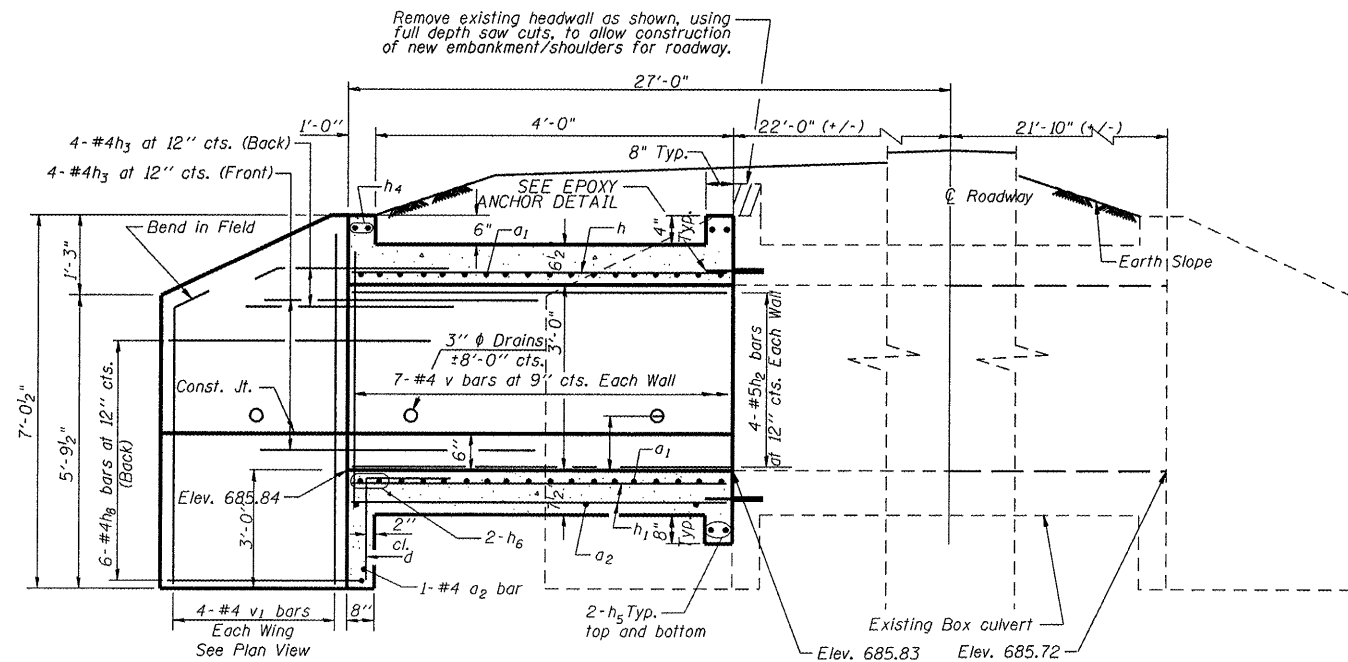 Remove existing headwall as shown, using
full depth saw cuts, to allow construction
of new embankment/shoulders for roadway.
27'-0"
1'-0"
4'-0"
22'-0" (+/-)
21'-10" (+/-)
4-#4h3 at 12" cts. (Back)
4-#4h3 at 12" cts. (Front)
8" Typ.
h4
SEE EPOXY
ANCHOR DETAIL
℄ Roadway
Bend in Field
6"
a1
6½"
h
4"
Typ.
Earth Slope
1'-3"
7'-0½"
5'-9½"
6-#4h8 bars at 12" cts.
(Back)
3" ϕ Drains
±8'-0" cts.
3'-0"
7-#4 v bars at 9" cts. Each Wall
4-#5h2 bars
at 12" cts. Each Wall
Const. Jt.
6"
a1
Elev. 685.84
3'-0"
2"
cl.
d
2-h6
7½"
h1
8"
Typ.
a2
1-#4 a2 bar
4-#4 v1 bars
Each Wing
See Plan View
8"
2-h5 Typ.
top and bottom
Existing Box culvert
Elev. 685.83
Elev. 685.72